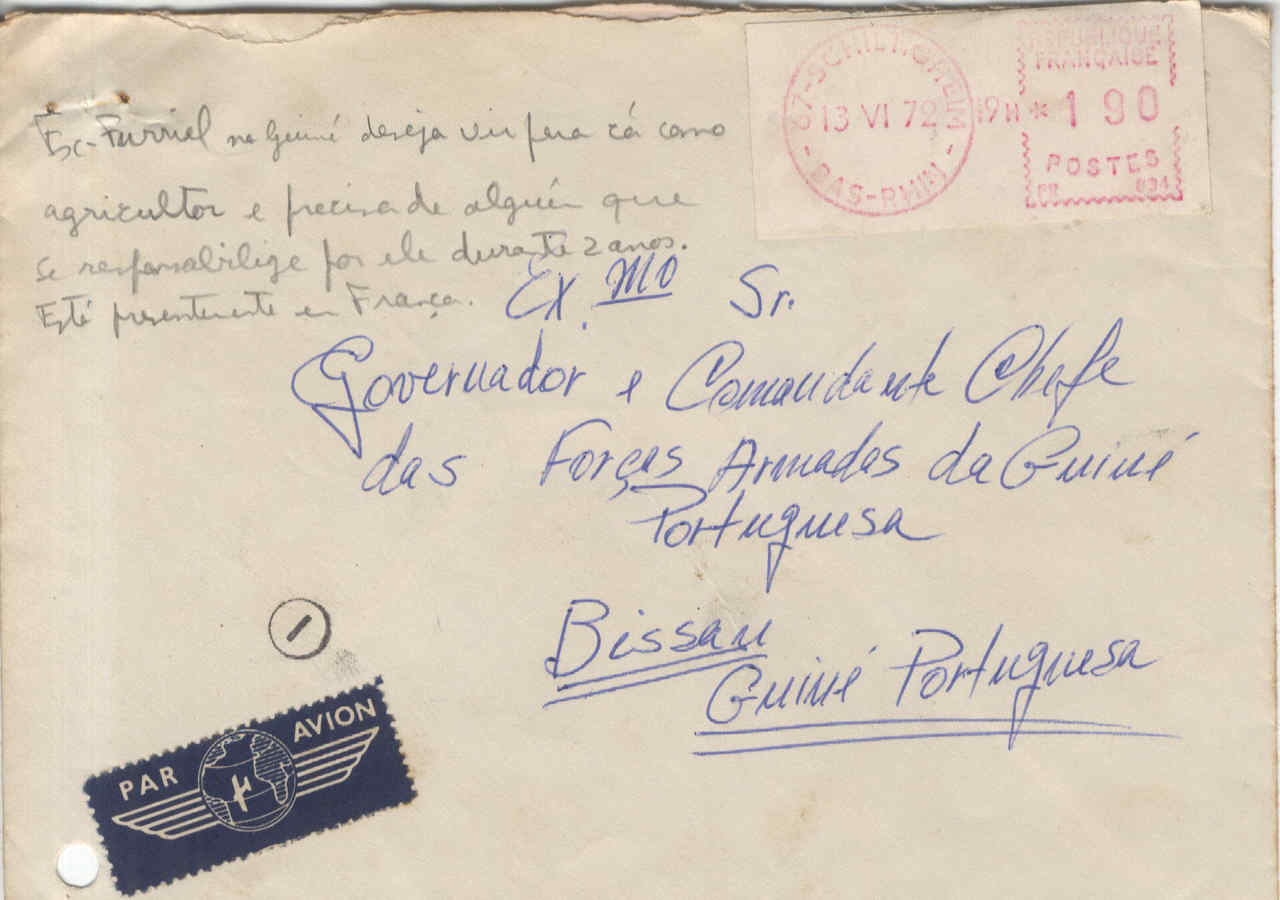 67-SCHILTIGHEIM
13 VI 72 19H * 190
BAS-RHIN
REPUBLIQUE
FRANÇAISE
POSTES
Ex-Furriel na Guiné deseja vir para cá como
agricultor e precisa de alguén que
se responsabilize por ele durante 2 anos.
Está presentemente em França.
Ex.mo Sr.
Governador e Comandante Chefe
das Forças Armadas da Guiné
Portuguesa
Bissau
Guiné Portuguesa
PAR AVION